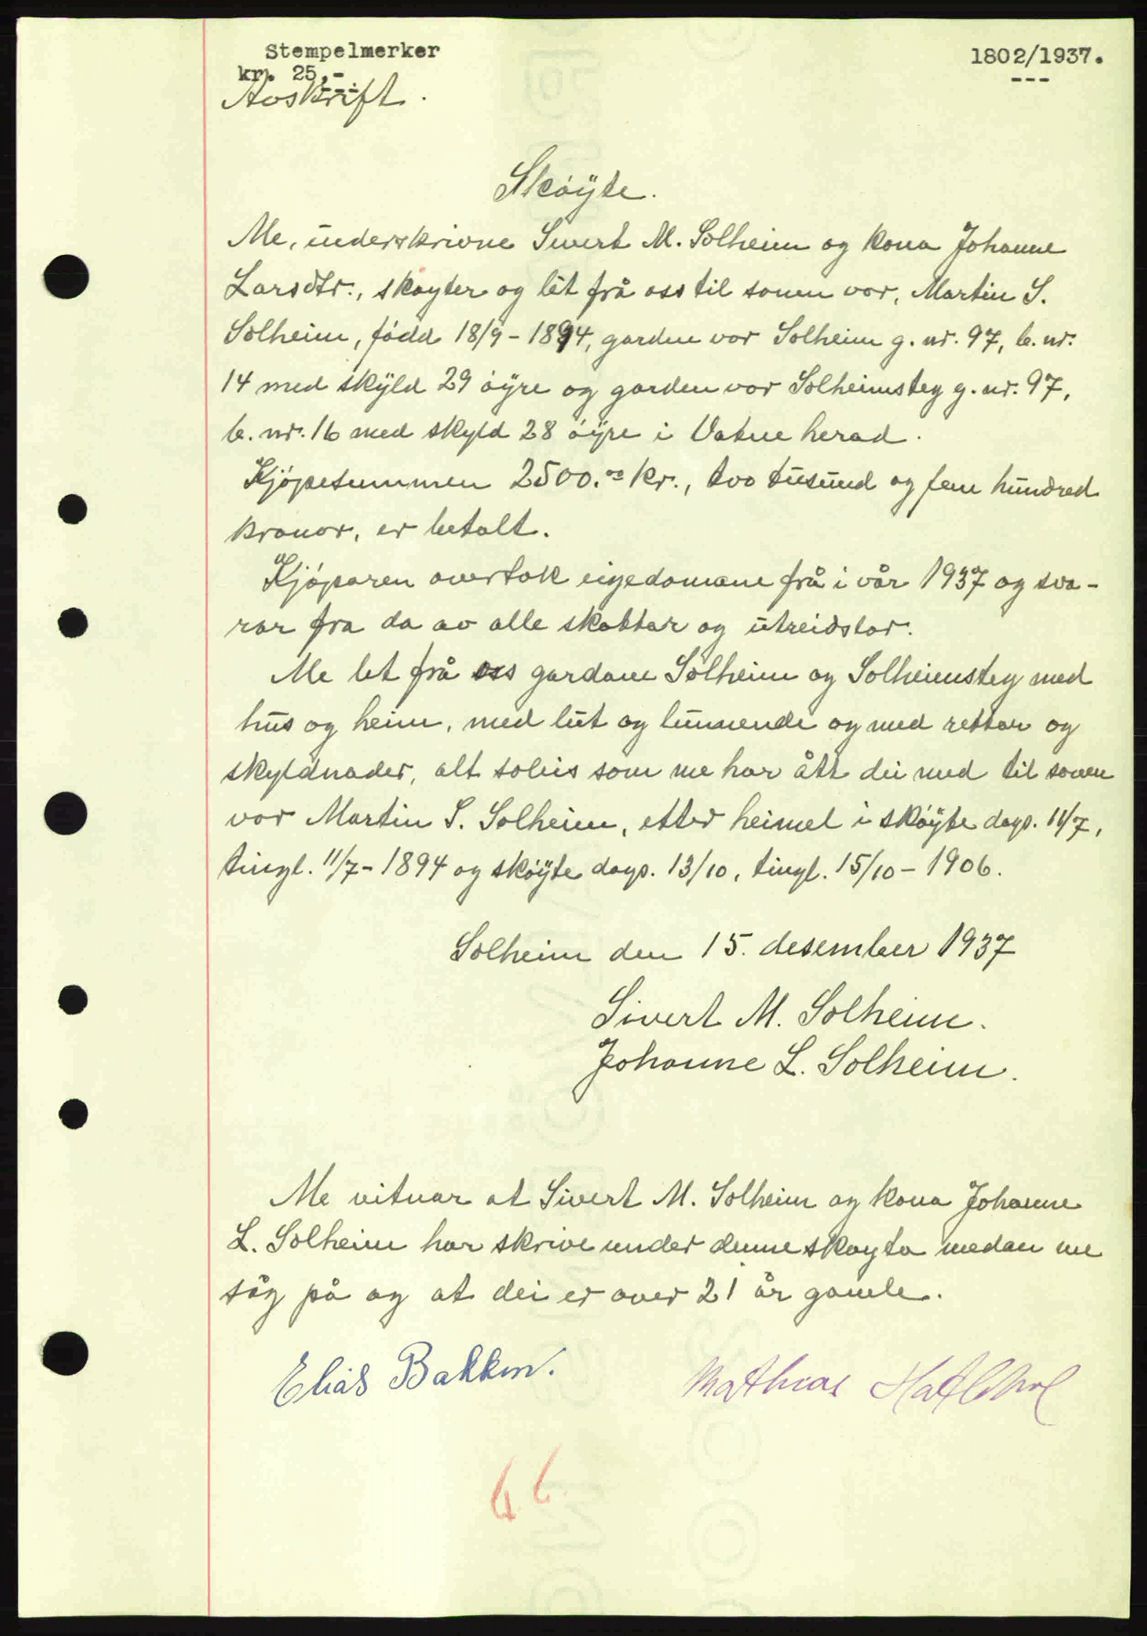 Stempelmerker
kr. 25,-
1802/1937.
---
Avskrift.
Skøyte.
Me, underskrivne Sivert M. Solheim og kona Johanne
Larsdtr., skøyter og lét frå oss til sonen vor, Martin S.
Solheim, fødd 18/9-1894, garden vor Solheim g. nr. 97, b. nr.
14 med skyld 29 øyre og garden vor Solheimsteg g. nr. 97,
b. nr. 16 med skyld 28 øyre i Vatne herad.
Kjøpesummen 2500.00 kr., tvo tusund og fem hundred
kronor, er betalt.
Kjøparen overtok eigedomane frå i vår 1937 og sva-
rar fra da av alle skattar og utreidslor.
Me let frå oss gardane Solheim og Solheimsteg med
hus og heim, med lut og lunnende og med rettar og
skyldnader, alt soleis som me har ått dei med til sonen
vor Martin S. Solheim, etter heimel i skøyte dags. 11/7,
tingl. 11/7-1894 og skøyte dags. 13/10, tingl. 15/10-1906.
Solheim den 15. desember 1937
Sivert M. Solheim.
Johanne L. Solheim.
Me vitnar at Sivert M. Solheim og kona Johanne
L. Solheim har skrive under denne skøyta medan me
såg på og at dei er over 21 år gamle.
Elias Bakken.
Mathias
66